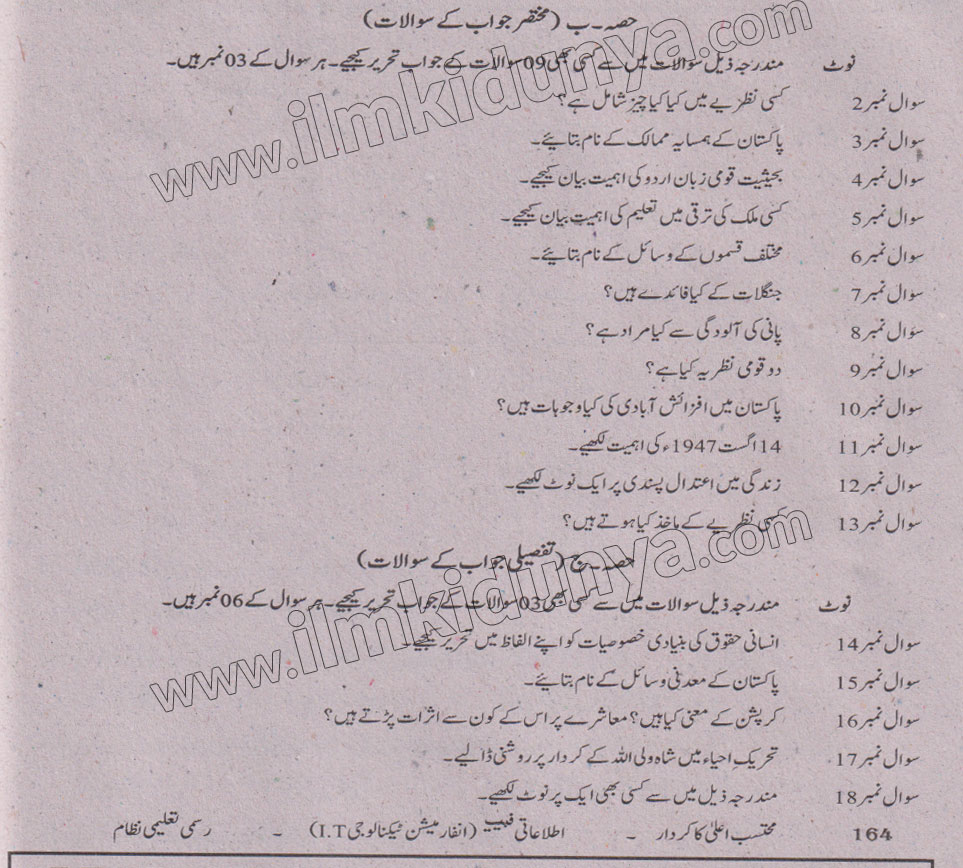 حصہ۔ب (مختصر جواب کے سوالات)
نوٹ مندرجہ ذیل سوالات میں سے کسی بھی 09 سوالات کے جواب تحریر کیجیے۔ ہر سوال کے 03 نمبر ہیں۔
سوال نمبر 2 کسی نظریے میں کیا کیا چیز شامل ہے؟
سوال نمبر 3 پاکستان کے ہمسایہ ممالک کے نام بتائیے۔
سوال نمبر 4 بحیثیت قومی زبان اردو کی اہمیت بیان کیجیے۔
سوال نمبر 5 کسی ملک کی ترقی میں تعلیم کی اہمیت بیان کیجیے۔
سوال نمبر 6 مختلف قسموں کے وسائل کے نام بتائیے۔
سوال نمبر 7 جنگلات کے کیا فائدے ہیں؟
سوال نمبر 8 پانی کی آلودگی سے کیا مراد ہے؟
سوال نمبر 9 دو قومی نظریہ کیا ہے؟
سوال نمبر 10 پاکستان میں افزائش آبادی کی کیا وجوہات ہیں؟
سوال نمبر 11 14 اگست 1947ء کی اہمیت لکھیے۔
سوال نمبر 12 زندگی میں اعتدال پسندی پر ایک نوٹ لکھیے۔
سوال نمبر 13 کسی نظریے کے ماخذ کیا ہوتے ہیں؟
حصہ۔ج (تفصیلی جواب کے سوالات)
نوٹ مندرجہ ذیل سوالات میں سے کسی بھی 03 سوالات کے جواب تحریر کیجیے۔ ہر سوال کے 06 نمبر ہیں۔
سوال نمبر 14 انسانی حقوق کی بنیادی خصوصیات کو اپنے الفاظ میں تحریر کیجیے۔
سوال نمبر 15 پاکستان کے معدنی وسائل کے نام بتائیے۔
سوال نمبر 16 کرپشن کے معنی کیا ہیں؟ معاشرے پر اس کے کون سے اثرات پڑتے ہیں؟
سوال نمبر 17 تحریک احیاء میں شاہ ولی اللہ کے کردار پر روشنی ڈالیے۔
سوال نمبر 18 مندرجہ ذیل میں سے کسی بھی ایک پر نوٹ لکھیے۔
164 محتسب اعلیٰ کا کردار ۔ اطلاعاتی (انفارمیشن ٹیکنالوجی I.T) ۔ رسمی تعلیمی نظام
www.ilmkidunya.com
www.ilmkidunya.com